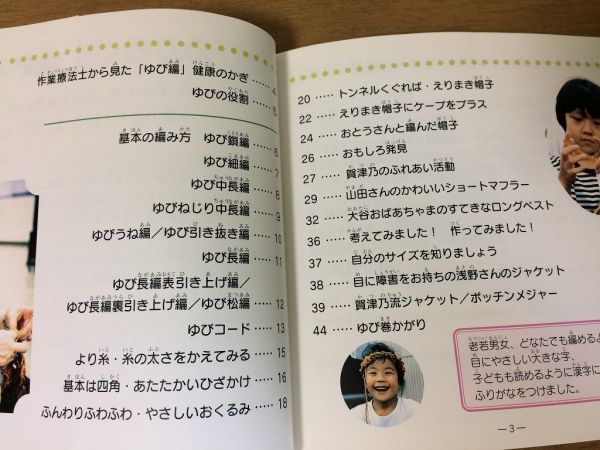 作業療法士から見た「ゆび編」健康のかぎ …… 4
ゆびの役割 …… 5
基本の編み方 ゆび鎖編 …… 6
ゆび細編 …… 7
ゆび中長編 …… 8
ゆびねじり中長編 …… 9
ゆびうね編／ゆび引き抜き編 …… 10
ゆび長編 …… 11
ゆび長編表引き上げ編／
ゆび長編裏引き上げ編／ゆび松編 …… 12
ゆびコード …… 13
より糸・糸の太さをかえてみる …… 15
基本は四角・あたたかいひざかけ …… 16
ふんわりふわふわ・やさしいおくるみ …… 18
20 …… トンネルくぐれば・えりまき帽子
22 …… えりまき帽子にケープをプラス
24 …… おとうさんと編んだ帽子
26 …… おもしろ発見
27 …… 賀津乃のふれあい活動
29 …… 山田さんのかわいいショートマフラー
32 …… 大谷おばあちゃまのすてきなロングベスト
36 …… 考えてみました！ 作ってみました！
37 …… 自分のサイズを知りましょう
38 …… 目に障害をお持ちの浅野さんのジャケット
39 …… 賀津乃流ジャケット／ポッチンメジャー
44 …… ゆび巻かがり
老若男女、どなたでも編めるよ
目にやさしい大きな字、
子どもも読めるように漢字に
ふりがなをつけました。
―3―